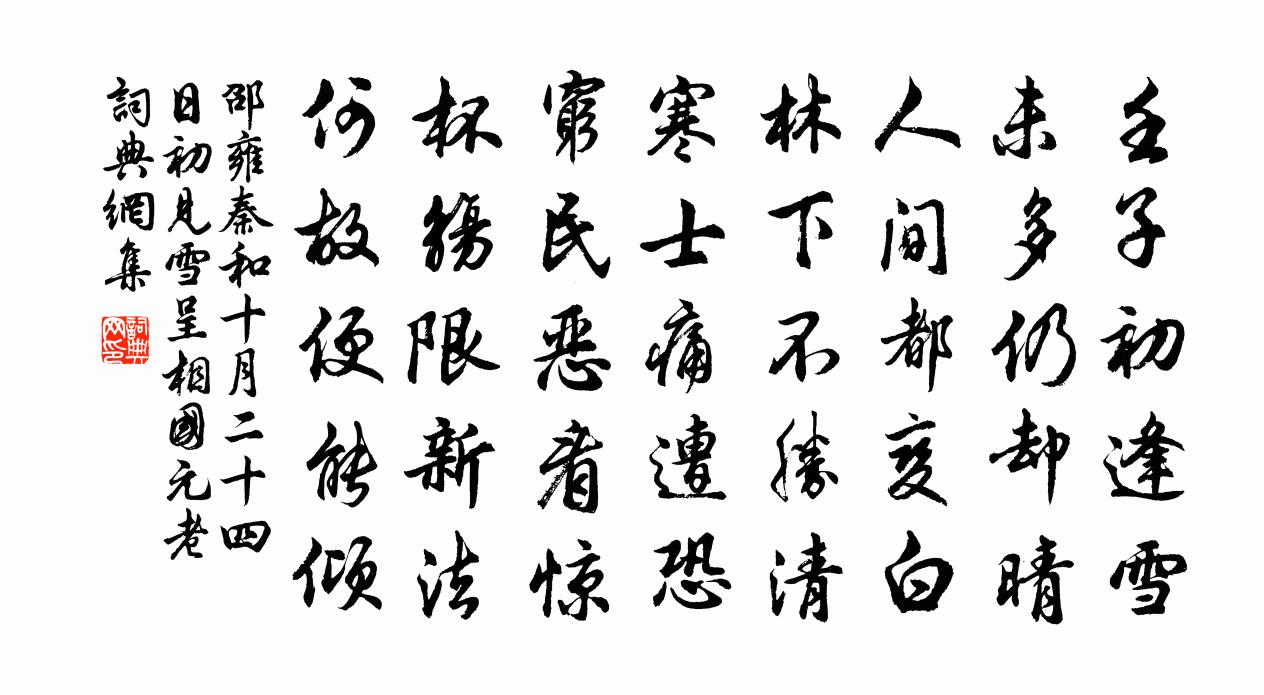 壬子初逢雪
未多仍却晴
人間都变白
林下不勝清
寒士痛遭恐
窮民恶看惊
杯觴限新法
何故便能倾
邵雍奉和十月二十四
日初見雪呈相國元老
詞典網集
詞典网印